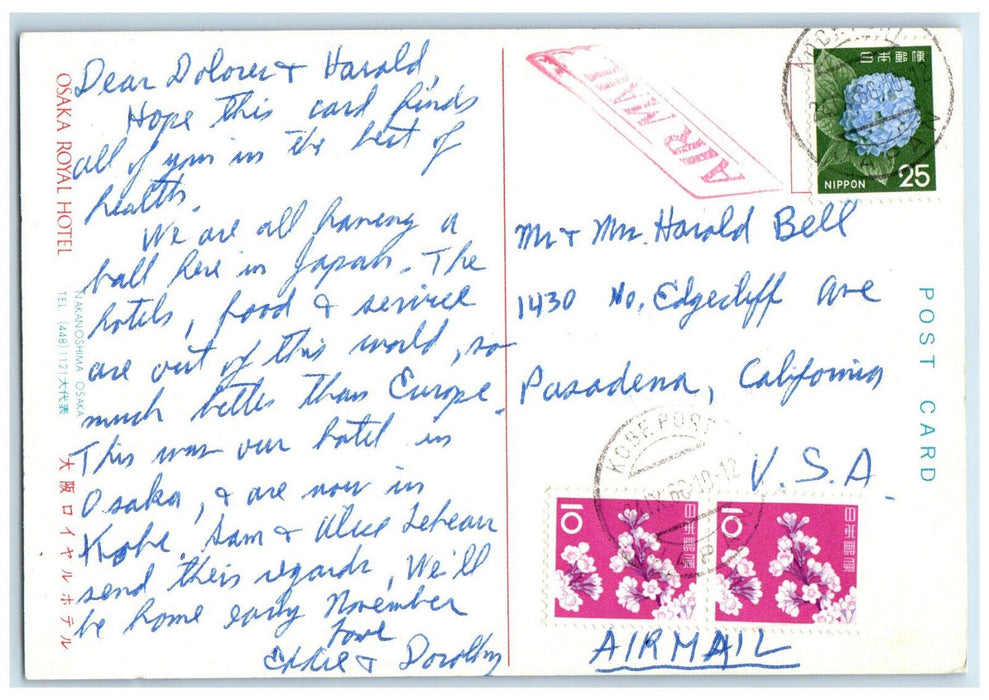 Dear Dolores & Harold,
Hope this card finds
all of you in the best of
health.
We are all having a
ball here in Japan. The
hotels, food & service
are out of this world, so
much better than Europe.
This was our hotel in
Osaka, & are now in
Kobe. Sam & Alice Lebeau
send their regards, We'll
be home early November
Love
Eddie & Dorothy
OSAKA ROYAL HOTEL
NAKANOSHIMA OSAKA
TEL (448)1121大代表
大阪ロイヤルホテル
AIR MAIL
日本郵便
NIPPON 25
JAPAN
Mr & Mrs. Harold Bell
1430 No. Edgecliff Ave
Pasadena, California
U.S.A.
POST CARD
KOBE PORT
IX.66.10-12
10 日本郵便
10 日本郵便
AIRMAIL